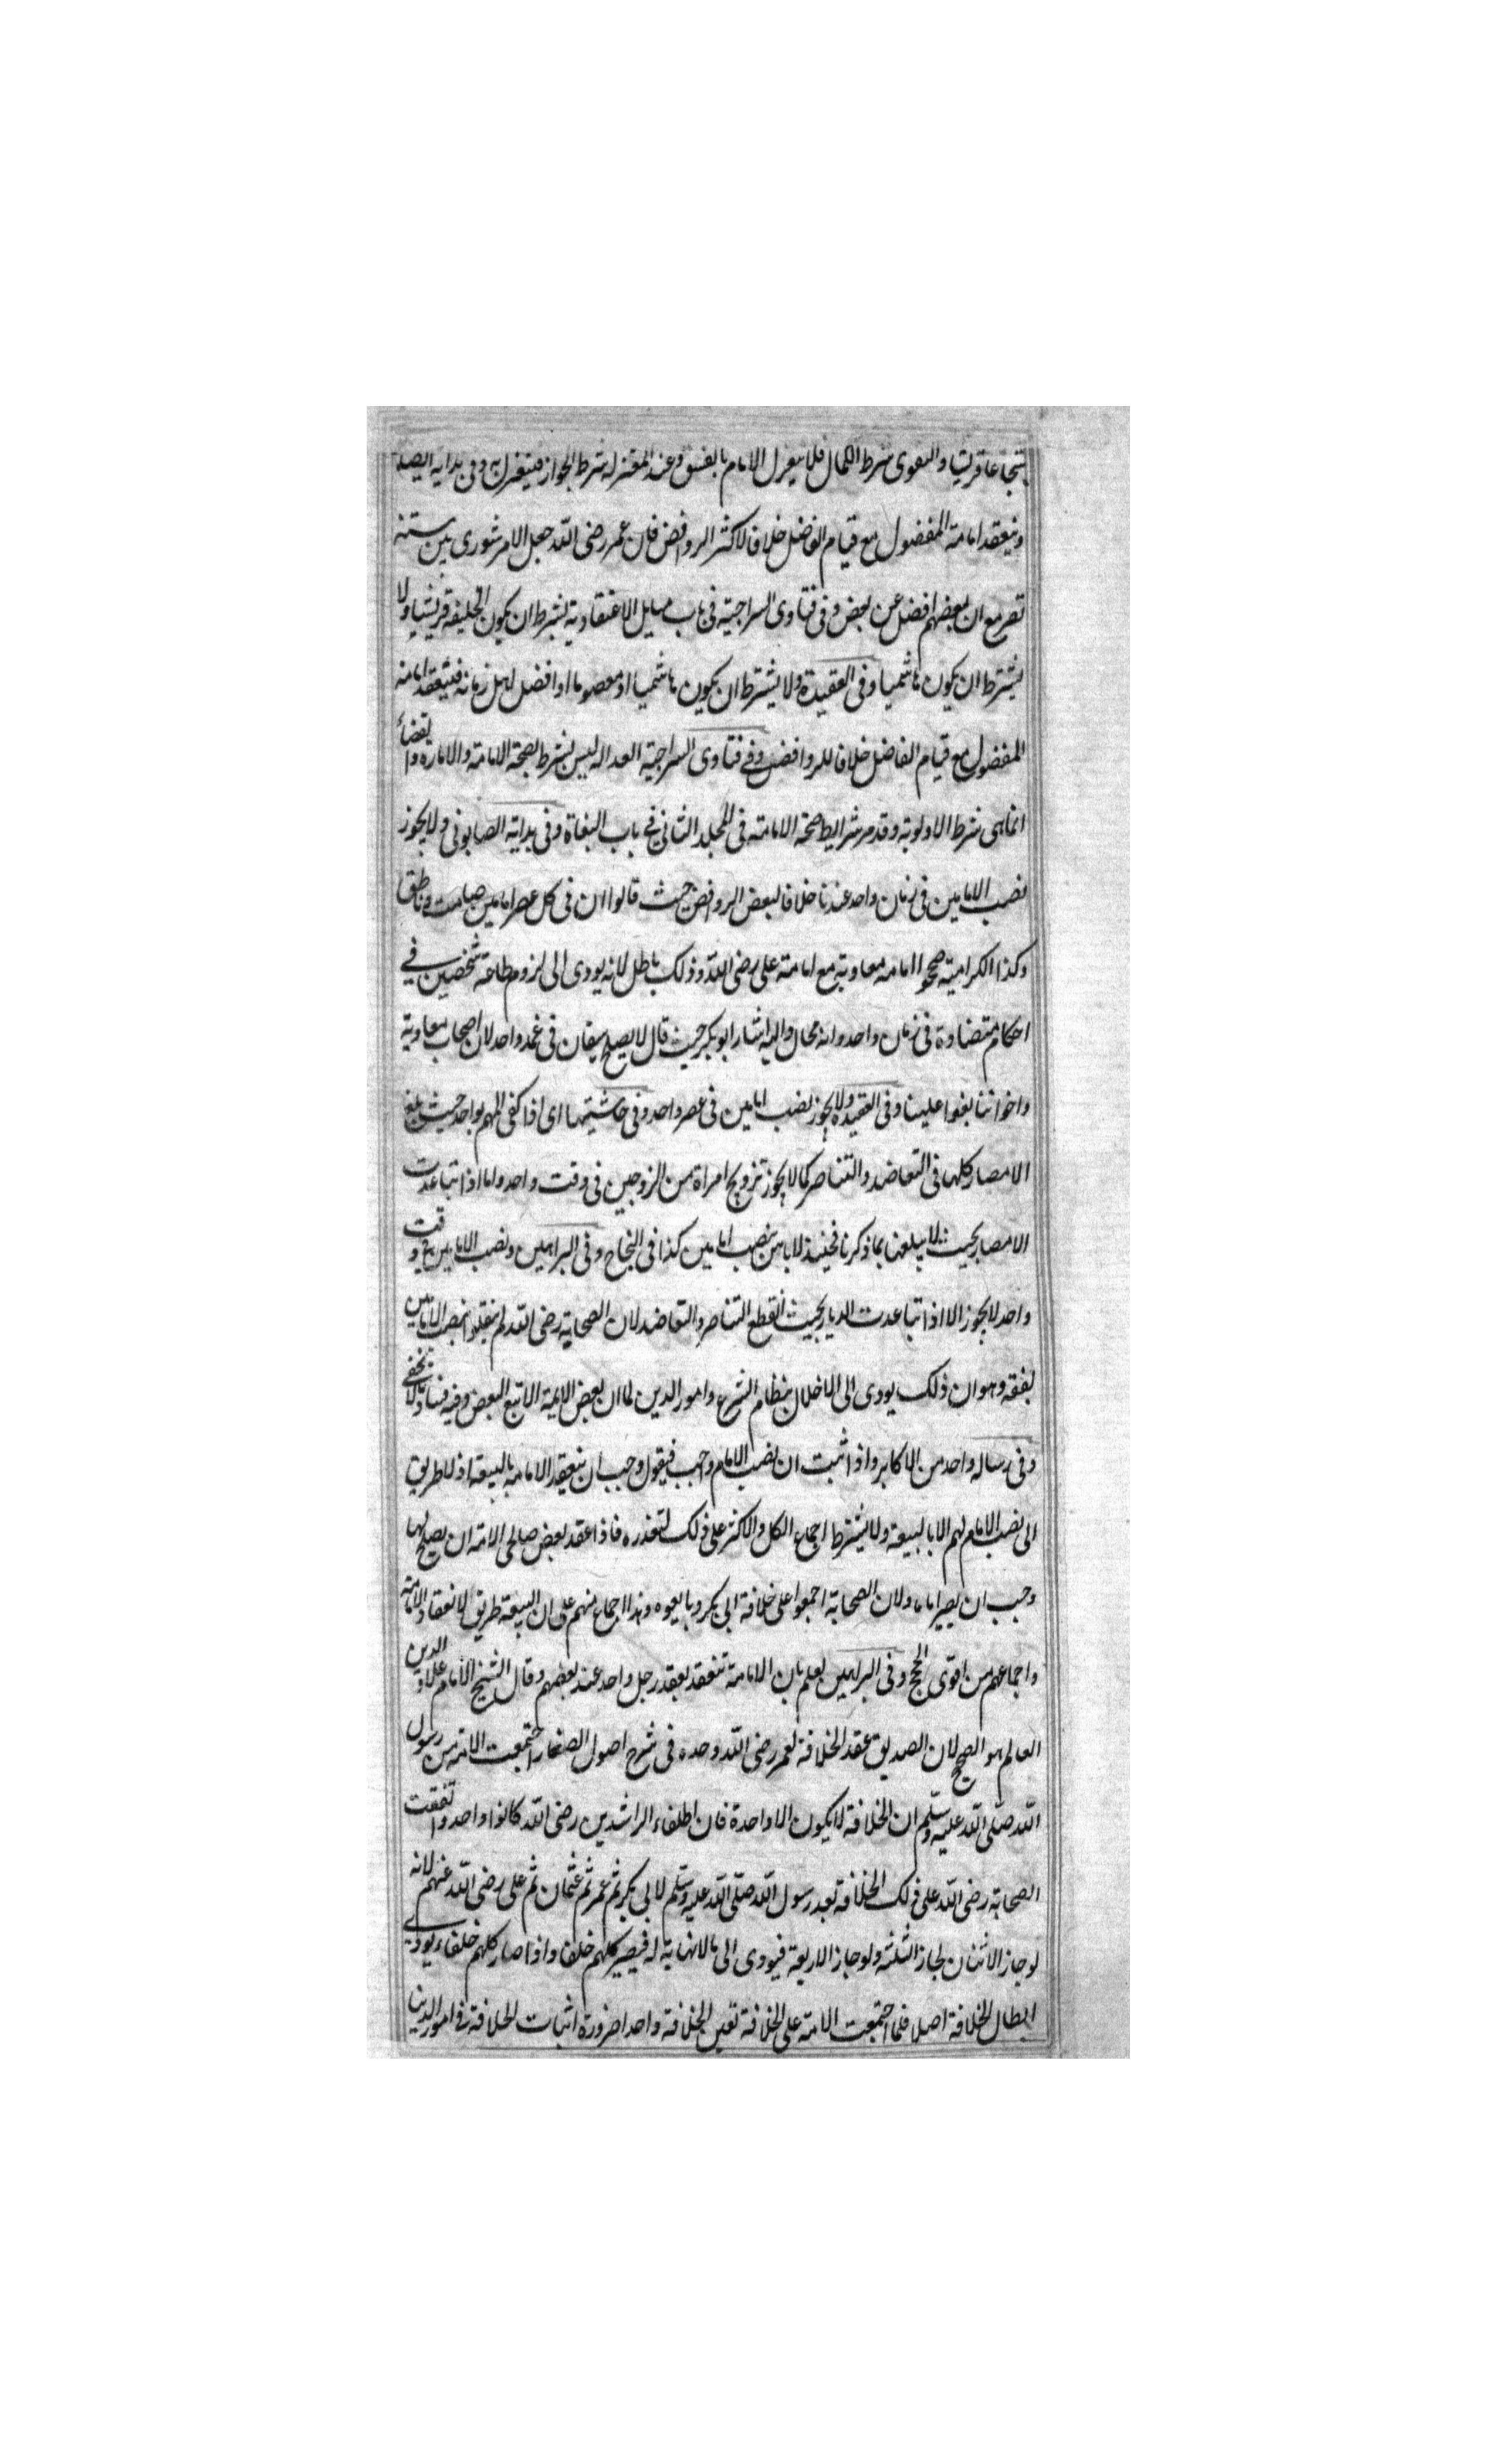 شجاعا قريشيا والتقوى شرط الكمال فلا ينعزل الامام بالفسق وعند المعتزله شرط الجواز فينعزل به وفى بداية
وينعقد امامة المفضول مع قيام الفاضل خلافا لاكثر الروافض فان عمر رضى الله جعل الامر شورى بين ستة
نفر مع ان بعضهم افضل عن بعض وفى فتاوى السراجية فى باب مسايل الاعتقادية يشترط ان يكون الخليفة قريشيا ولا
يشترط ان يكون هاشميا وفى العقيدة ولا يشترط ان يكون هاشميا او معصوما او افضل اهل زمانه فينعقد امامة
المفضول مع قيام الفاضل خلافا للروافض وفى فتاوى السراجية العداله ليس بشرط لصحة الامامة والامارة والقضاء
انما هى شرط الاولوية وقد مر شرايط صحة الامامة فى المجلد الثانى فى باب البغاة وفى بداية الصابونى ولا يجوز
نصب الامامين فى زمان واحد عندنا خلافا لبعض الروافض حيث قالوا ان فى كل عصر امامين صامت وناطق
وكذا الكرامية صححوا امامه معاوية مع امامة على رضى الله وذلك باطل لانه يودى الى لزوم طاعة شخصين فى
احكام متضادة فى زمان واحد وانه محال واليه اشار ابو بكر حيث قال لا يصلح سيفان فى غمد واحد لان اصحاب معاوية
واخواننا بغوا علينا وفى العقيدة ولا يجوز نصب امامين فى عصر واحد وفى حاشيتها اى اذا كفى المهم بواحد حيث يبلغ
الامصار كلها فى التعاضد والتناصر كما لا يجوز تزويج امراة من الزوجين فى وقت واحد واما اذا تباعدت
الامصار بحيث لا يبلغها بما ذكرنا فحينئذ لا باس بنصب امامين كذا فى النجاح وفى البراهين ونصب الامامين فى وقت
واحد لا يجوز الا اذا تباعدت الديار بحيث انقطع التناصر والتعاضد لان الصحابة رضى الله لم ينقلوا نصب الامامين
لفقه وهو ان ذلك يودى الى الاخلال بنظام الشرع وامور الدين لما ان بعض الايمة الا تبع البعض وفيه فساد لا يخفى
وفى رساله واحد من الاكابر واذا ثبت ان نصب الامام واجب فيقول وجب ان ينعقد الامامة بالبيعة اذ لا طريق
الى نصب الامام لهم الا بالبيعة ولا يشترط اجماع الكل والاكثر على ذلك لتعذره فاذا عقد بعض صالحى الامة ان يصلح لها
وجب ان يصير اماما ولان الصحابة اجمعوا على خلافة ابى بكر وبايعوه وهذا اجماع منهم على ان البيعة طريق لانعقاد الامامة
واجماعهم من اقوى الحجج وفى البراهين يعلم بان الامامة تنعقد بعقد رجل واحد عند بعضهم وقال الشيخ الامام علاو الدين
العالم هو الصحيح لان الصديق عقد الخلافة لعمر رضى الله وحده فى شرح اصول الصفار اجتمعت الامة من رسول
الله صلى الله عليه وسلم ان الخلافة لا يكون الا واحدة فان الخلفاء الراشدين رضى الله كانوا واحد واتفقت
الصحابة رضى الله على ذلك الخلافة بعد رسول الله صلى الله عليه وسلم لابى بكر ثم عمر ثم عثمان ثم على رضى الله عنهم لانه
لو جاز الاثنان لجاز الثلثة ولو جاز الاربعة فيودى الى مالا نهاية له فيصير كلهم خلفا واذا صار كلهم خلفاء يودى
ابطال الخلافة اصلا فلما اجتمعت الامة على الخلافة تعين الخلافة واحدا ضرورة اثبات الخلافة فى امور الدين